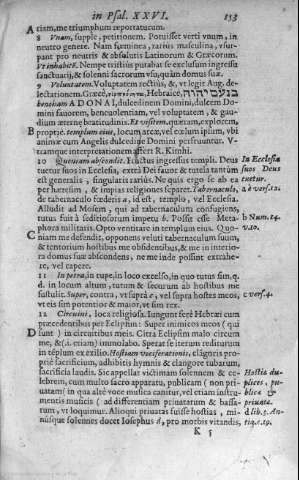 in Psal. XXVI. 153
A riam, me triumphum reportaturum.
8 Vnam, supple, petitionem. Potuisset verti vnum, in
neutro genere. Nam fœminea, rarius masculina, vsur-
pant pro neutris & absolutis Latinorum & Græcorum.
Vt inhabitē. Nempe tristius putabat se exclusum ingressu
sanctuarij, & solenni sacrorum vsu, quàm domus suæ.
9 Voluptatem. Voluptatem restius, &, vt legit Aug. de-
lectationem. Græcè, Hebraicè,
benoham ADONAI, dulcedinem Domini, dulcem Do-
mini fauorem, beneuolentiam, vel voluptatem, & gau-
dium æternæ beatitudinis. Et visitem. quæram, explorem.
B Propriè. templum eius, locum arcæ, vel exlum ipsum, vbi
animæ cum Angelis dulcedine Domini perfruuntur. V-
tramque interpretationem affert R. Kimhi.
10 Quoniam abscondit. Eiectus ingressus templi. Deus
tuetur suos in Ecclesia, extra Dei fauor & tutela tantùm
est generalis, singularis rarius. Ne quis ergo se ab ea
per hæresim, & impias religiones separet. Tabernaculū,
de tabernaculo fœderis a, id est, templo, vel Ecclesia.
Alludit ad Mosem, qui ad tabernaculum confugiens,
tutus fuit à seditiosorum impetu b. Posse esse Meta-
phora militaris. Opto ventitare in templum eius. Quo-
C niam me defendit, opponens veluti tabernaculum suum,
& tentorium hostibus me obsidentibus, & me in interio-
ra domus suæ abscondens, ne me inde possint extrahe-
re, vel capere.
11 In petra, in rupe, in loco excelso, in quo tutus sim. q.
d. in locum altum, tutum & securum ab hostibus me
sustulit. Super, contra, vt supra c, vel supra hostes meos,
vt eis sim potentior & maior, vt sim rex.
12 Circuiui, loca religiosa. Iungunt ferè Hebræi cum
præcedentibus per Eclipsim: Super inimicos meos (qui
D sunt) in circuitibus meis. Citra Eclipsim malo circuire
me, & (i. etiam) immolabo. Sperat se iterum rediturum
in templum ex exilio. Hostiam vociferationis. clangoris pro-
priè sacrificium, adhibitis hymnis & clangore tubarum,
sacrificia laudis. Sic appellat victimam solennem & ce-
lebrem, cum multo sacro apparatu, publicam (non pri-
uatam) in qua altè voce musica cantitur, vel etiam instru-
mentis musicis (ad differentiam priuatarum & bassa-
rum, vt loquimur. Alioqui priuatas fuisse hostias, mi-
nusque solennes docet Iosephus d, pro morbis vitandis,
K 5
In Ecclesia
suos Deus
tuetur.
a è vers. 12.
b Num. 14.
v. 10.
c vers. 4.
Hostiæ du-
plices, pu-
blicæ &
priuatæ.
d lib. 3. An-
tiq. c. 10.